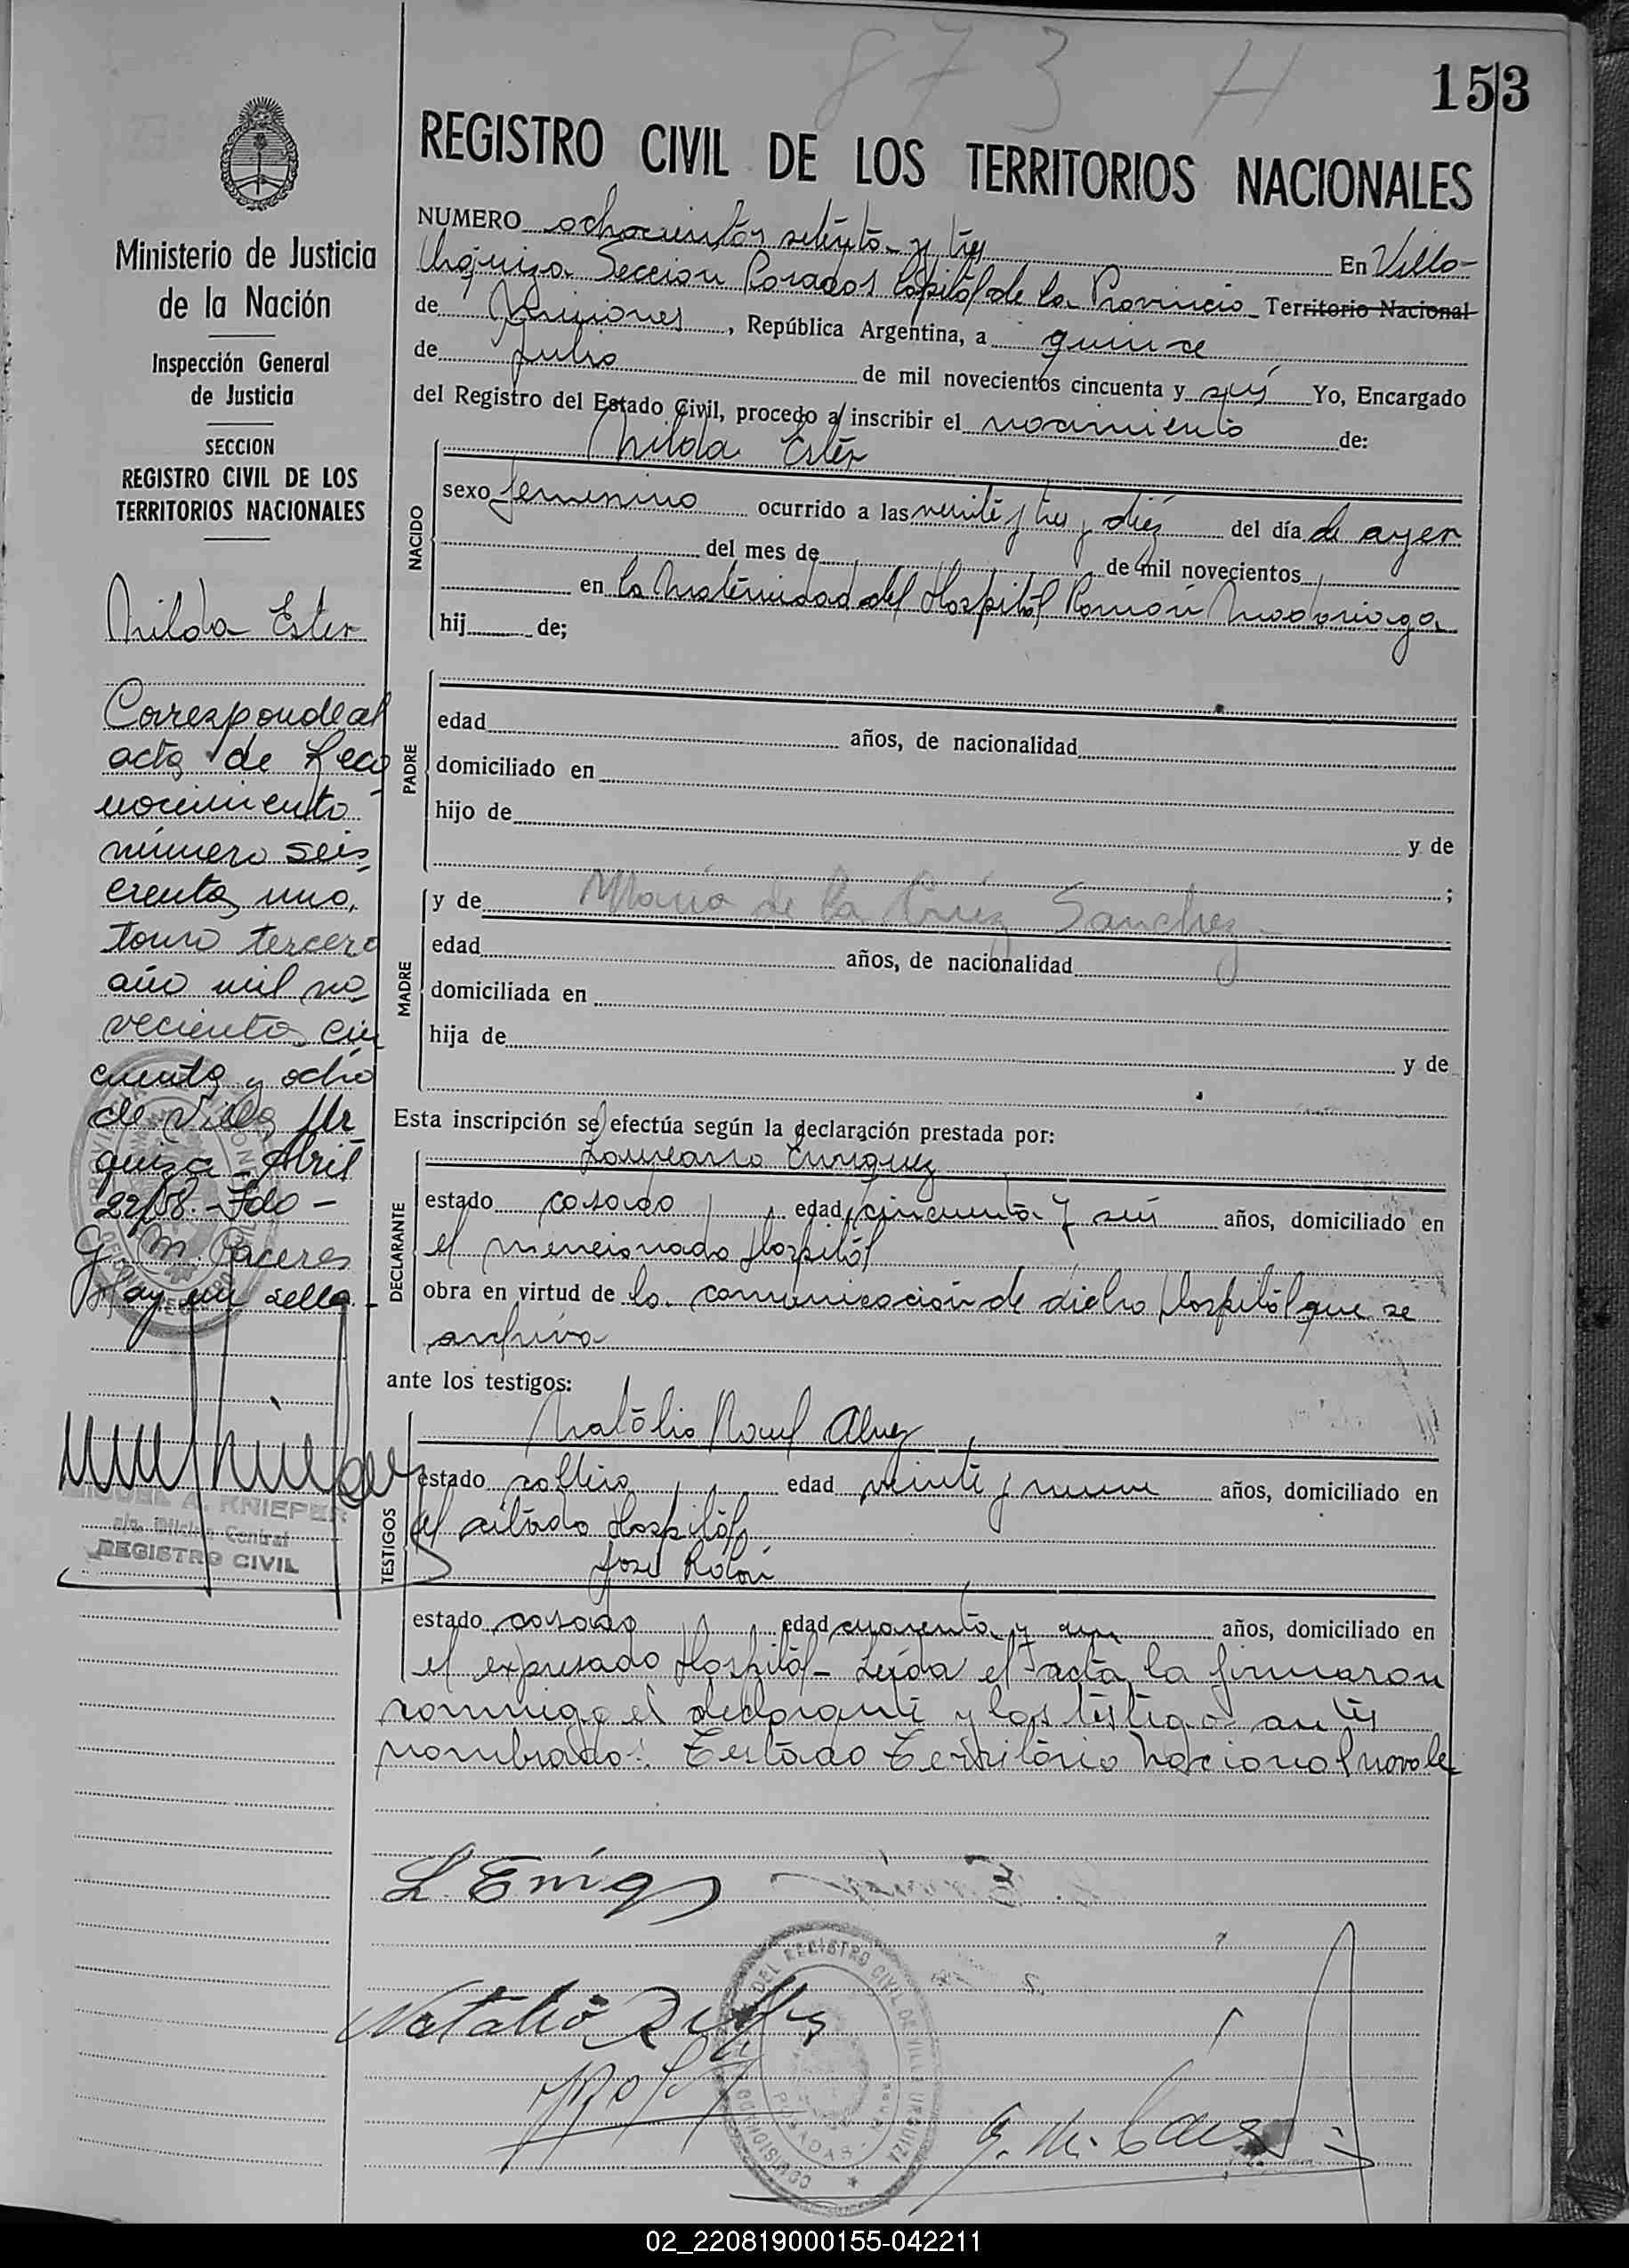 873 H
153
REGISTRO CIVIL DE LOS TERRITORIOS NACIONALES
Ministerio de Justicia
de la Nación
Inspección General
de Justicia
SECCION
REGISTRO CIVIL DE LOS
TERRITORIOS NACIONALES
Nilda Ester
Corresponde al
acta de Reco
nocimiento
número seis
cientos uno,
tomo tercero
año mil no
vecientos cin
cuenta y ocho
de Villa Ur
quiza - Abril
22/58. - Fdo -
G. M. Caceres
Hay un sello -
MIGUEL A. KNIEPER
Oficina Central
REGISTRO CIVIL
NUMERO ochocientos setenta y tres En Villa
Urquiza Seccion Posadas Capital de la Provincia Territorio Nacional
de Misiones, República Argentina, a quince
de Julio de mil novecientos cincuenta y seis Yo, Encargado
del Registro del Estado Civil, procedo a inscribir el nacimiento de:
NACIDO
Nilda Ester
sexo femenino ocurrido a las veinte y tres y diez del día de ayer
del mes de de mil novecientos
en la Maternidad del Hospital Ramón Madariaga
hij de;
PADRE
edad años, de nacionalidad
domiciliado en
hijo de y de
;
MADRE
y de María de la Cruz Sanchez -
edad años, de nacionalidad
domiciliada en
hija de y de
Esta inscripción se efectúa según la declaración prestada por:
DECLARANTE
Laureano Enriquez
estado casado edad cincuenta y seis años, domiciliado en
el mencionado Hospital
obra en virtud de la comunicacion de dicho Hospital que se
archiva
ante los testigos:
TESTIGOS
Natalio Raul Alvez
estado soltero edad veinte y nueve años, domiciliado en
el citado Hospital
José Rolón
estado casado edad cuarenta y un años, domiciliado en
el expresado Hospital - Leída el acta la firmaron
conmigo el declarante y los testigos antes
nombrados. Testado Territorio Nacional no vale
L. Enriq
Natalio R
DEL REGISTRO CIVIL DE VILLA URQUIZA
POSADAS
G. M. Caceres
02_220819000155-042211